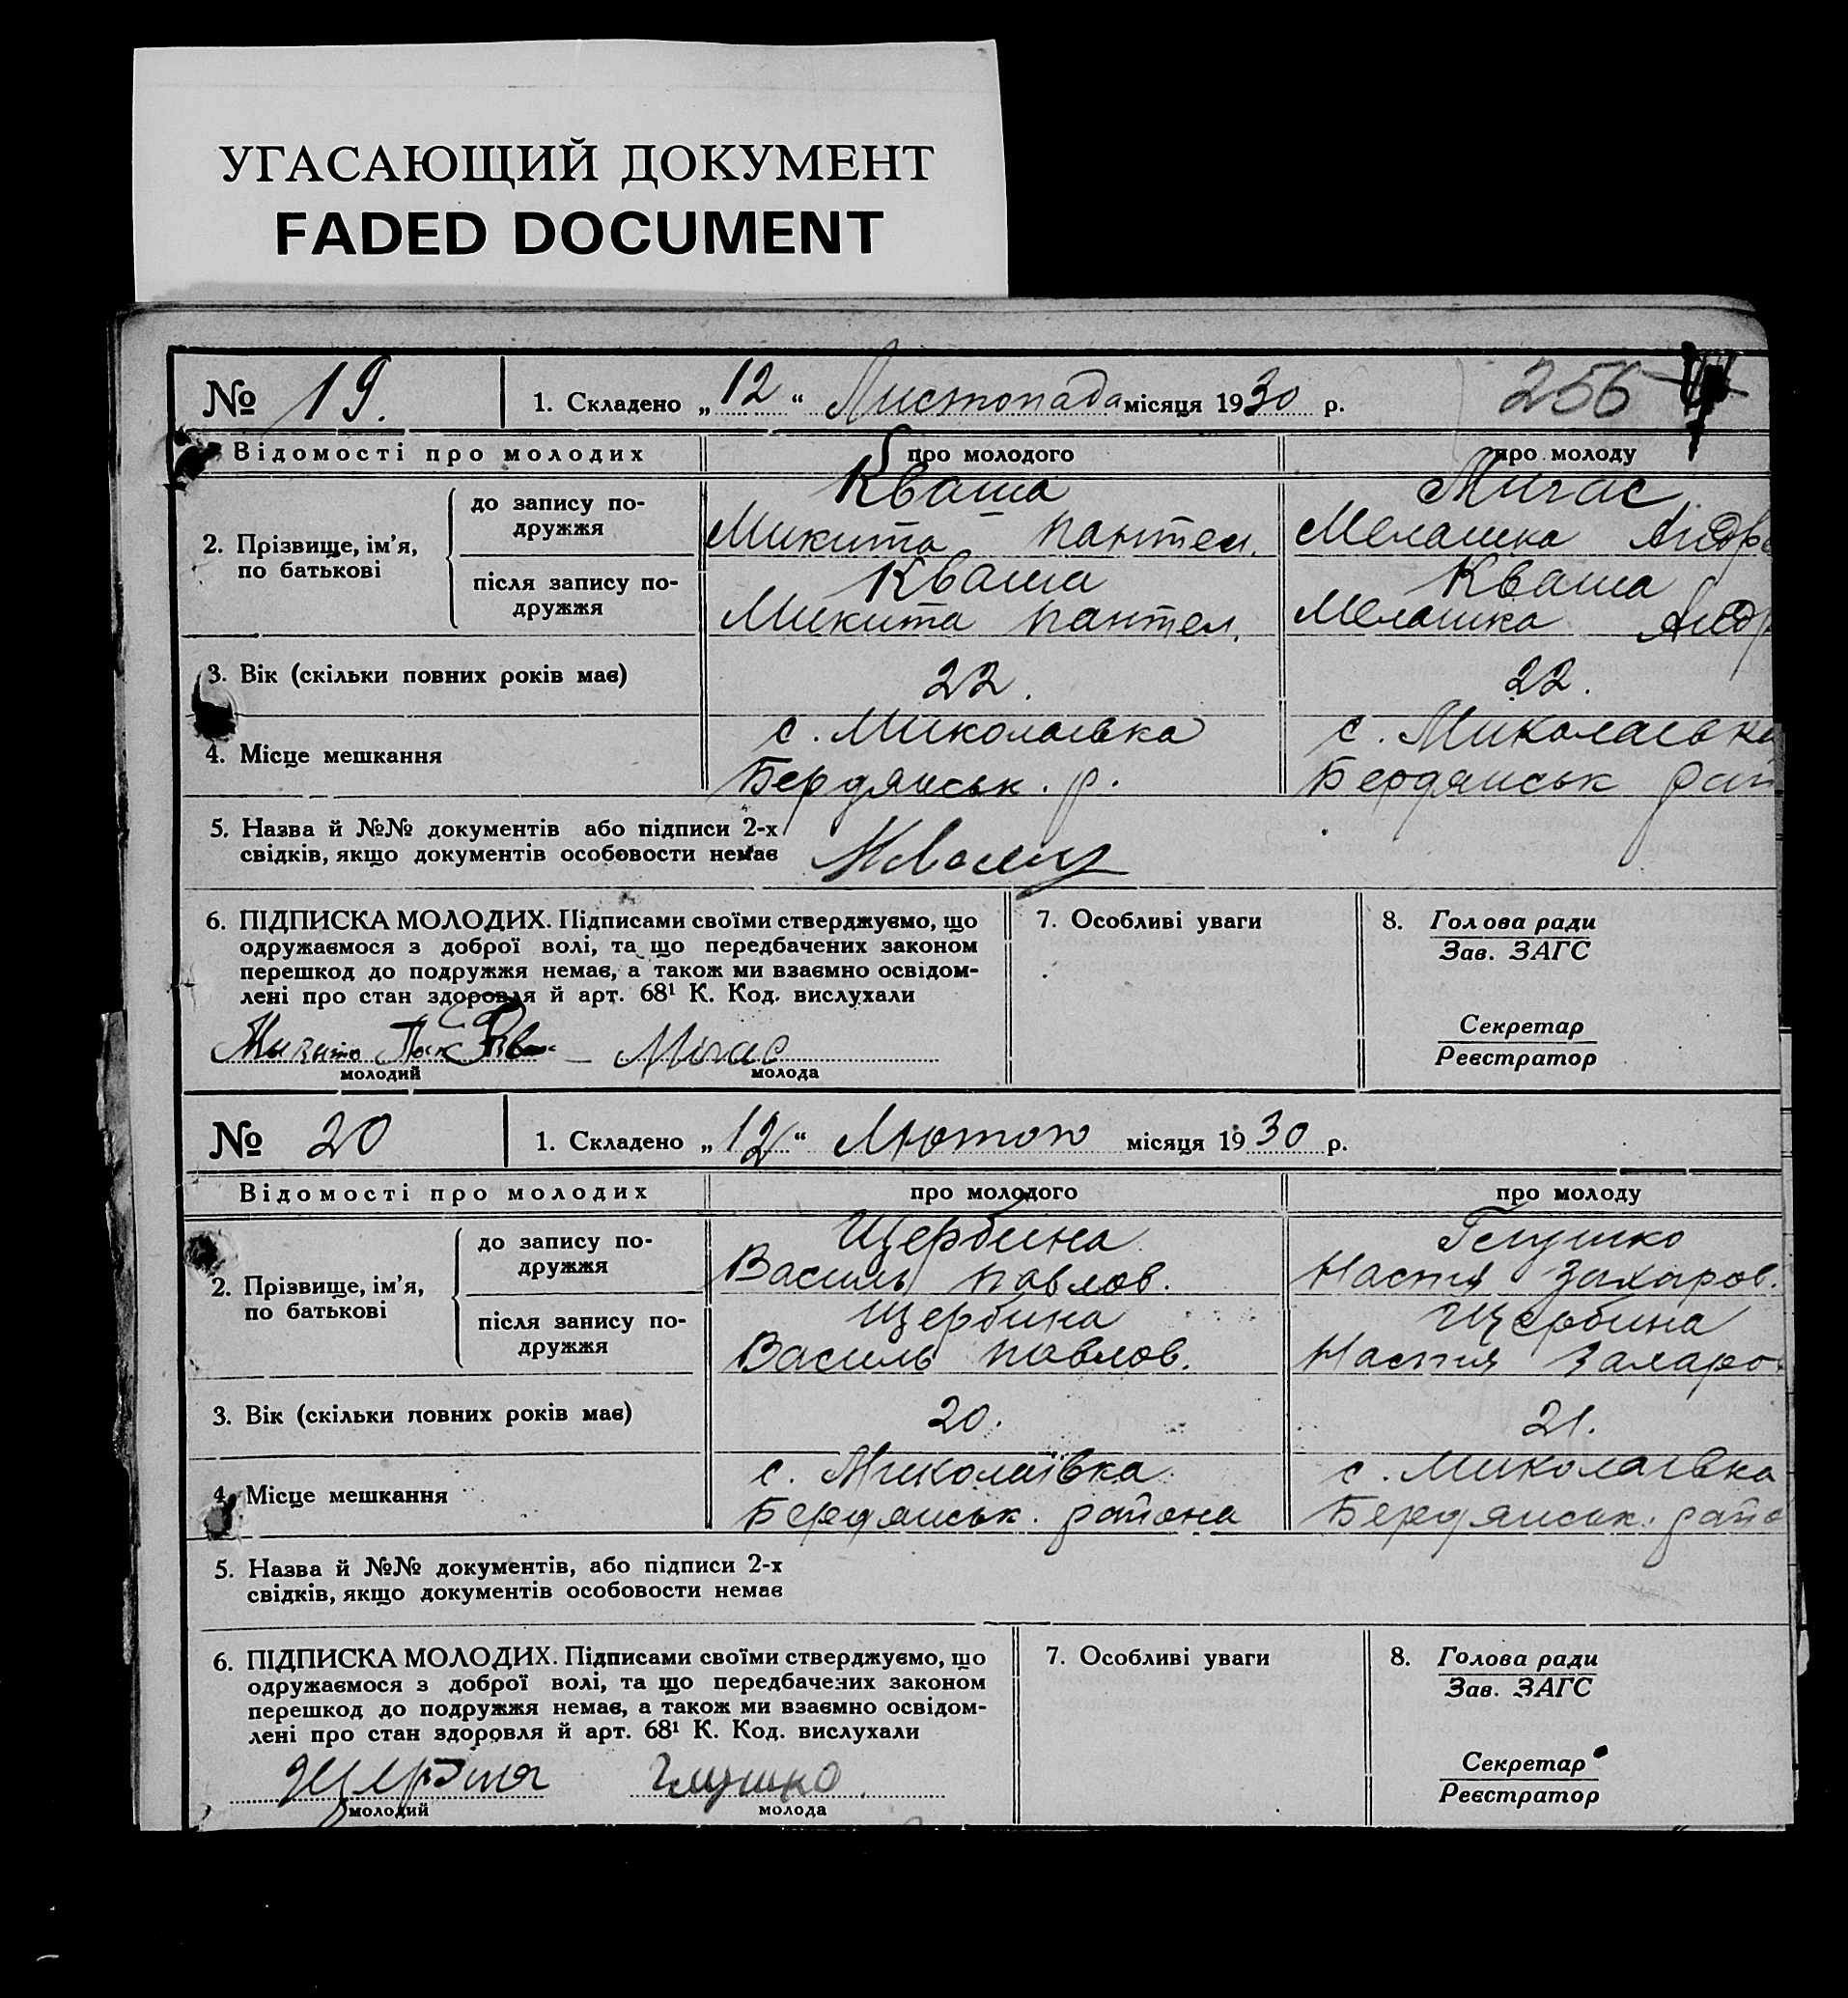 УГАСАЮЩИЙ ДОКУМЕНТ
FADED DOCUMENT
№ 19. 1. Складено „12“ Листопада місяця 1930 р. 256
Відомості про молодих про молодого про молоду
2. Прізвище, ім’я, по батькові
до запису по-
дружжя
Кваша
Микита Пантел.
Мигас
Мелашка Андре
після запису по-
дружжя
Кваша
Микита Пантел.
Кваша
Мелашка Андр
3. Вік (скільки повних років має) 22. 22.
4. Місце мешкання
с. Миколаївка
Бердянськ. р.
с. Миколаївка
Бердянськ рай
5. Назва й №№ документів або підписи 2-х
свідків, якщо документів особовости немає
6. ПІДПИСКА МОЛОДИХ. Підписами своїми стверджуємо, що
одружаємося з доброї волі, та що передбачених законом
перешкод до подружжя немає, а також ми взаємно освідом-
лені про стан здоровля й арт. 68¹ К. Код. вислухали
Мигас
молодий молода
7. Особливі уваги
8. Голова ради
Зав. ЗАГС
Секретар
Реєстратор
№ 20 1. Складено „12“ Лютого місяця 1930 р.
Відомості про молодих про молодого про молоду
2. Прізвище, ім’я,
по батькові
до запису по-
дружжя
Щербина
Василь Павлов.
Глушко
Настя Захаров.
після запису по-
дружжя
Щербина
Василь Павлов.
Щербина
Настя Захаро
3. Вік (скільки повних років має) 20. 21.
4. Місце мешкання
с. Миколаївка
Бердянськ. района
с. Миколаївка
Бердянськ. райо
5. Назва й №№ документів, або підписи 2-х
свідків, якщо документів особовости немає
6. ПІДПИСКА МОЛОДИХ. Підписами своїми стверджуємо, що
одружаємося з доброї волі, та що передбачених законом
перешкод до подружжя немає, а також ми взаємно освідом-
лені про стан здоровля й арт. 68¹ К. Код. вислухали
Щербина Глушко
молодий молода
7. Особливі уваги
8. Голова ради
Зав. ЗАГС
Секретар
Реєстратор